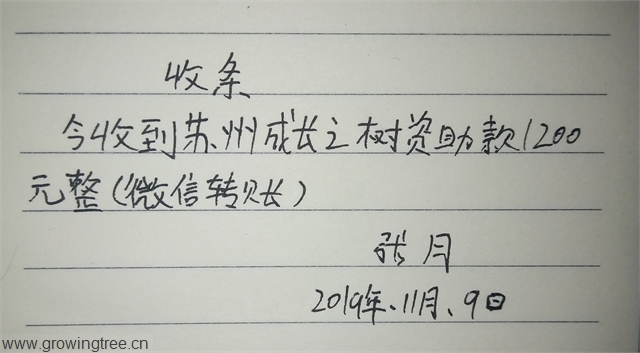 收条
今收到苏州成长之树资助款1200
元整(微信转账)
张月
2019年、11月、9日
www.growingtree.cn